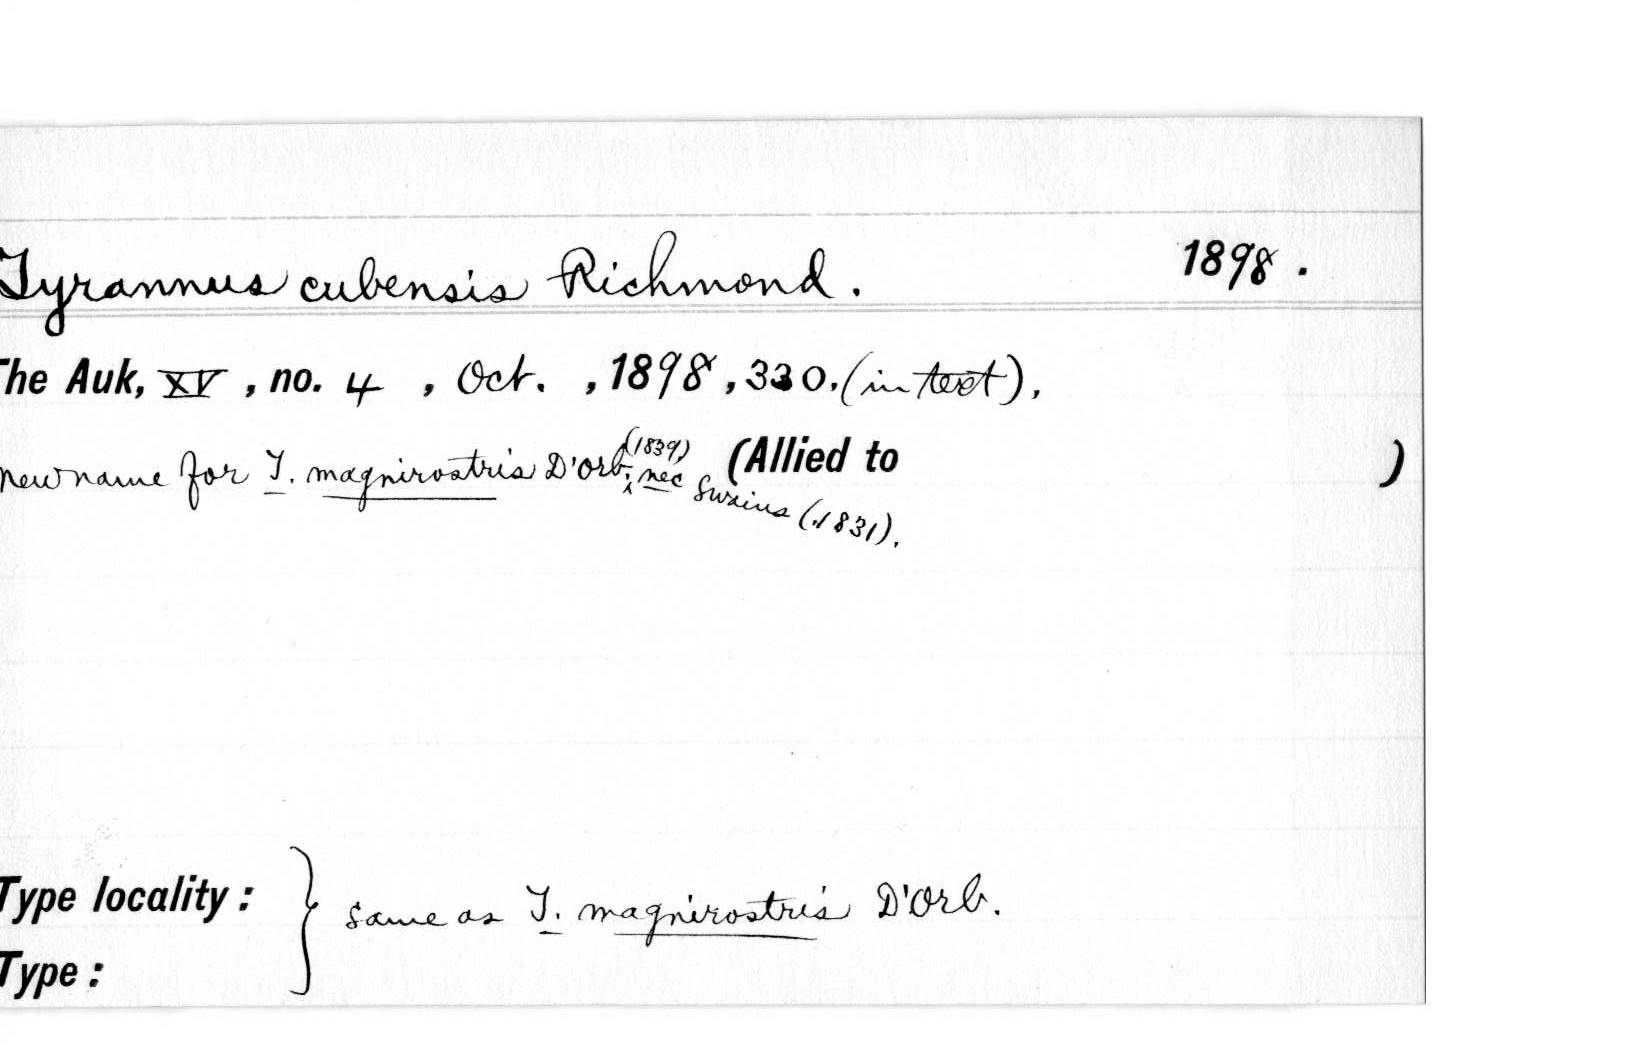 Tyrannus cubensis Richmond. 1898.
The Auk, XV, no. 4, Oct., 1898, 330. (in text).
new name for T. magnirostris D'Orb. (1839) nec Swains (1831). (Allied to )
Type locality: } same as T. magnirostris D'Orb.
Type: